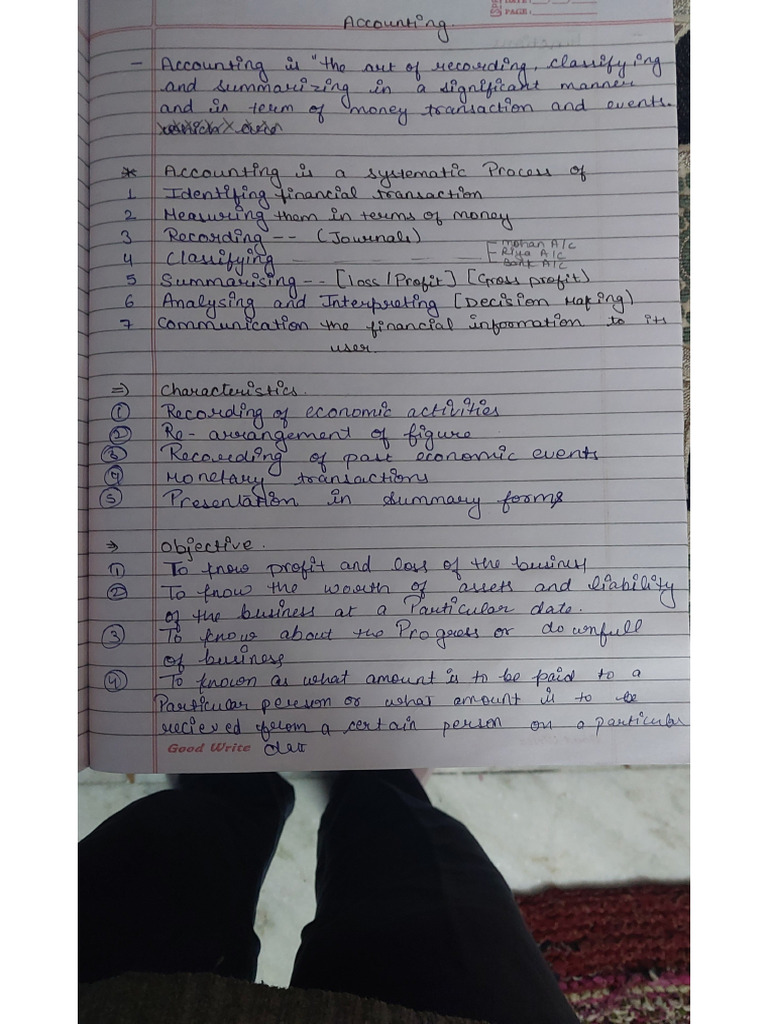 PAGE:
Accounting.
- Accounting is "the art of recording, classifying
and summarizing in a significant manner
and in term of money transaction and events.
* Accounting is a systematic Process of
1 Identifing financial transaction
2 Measuring them in terms of money
3 Recording -- (Journals)
4 Classifying Mohan A/C
Riya A/C
Bank A/C
5 Summarising -- [Loss/Profit] [Gross profit)
6 Analysing and Interpreting [Decision Making)
7 Communication the financial information to its
user.
=) Characteristics.
① Recording of economic activities
② Re-arrangement of figure
③ Recording of past economic events
④ Monetary transactions
⑤ Presentation in summary forms
=> Objective.
① To know profit and loss of the business
② To know the worth of assets and liability
of the business at a Particular date.
③ To know about the Progress or downfull
of business
④ To known as what amount is to be paid to a
Particular person or what amount is to be
recieved from a certain person on a particular
Good Write